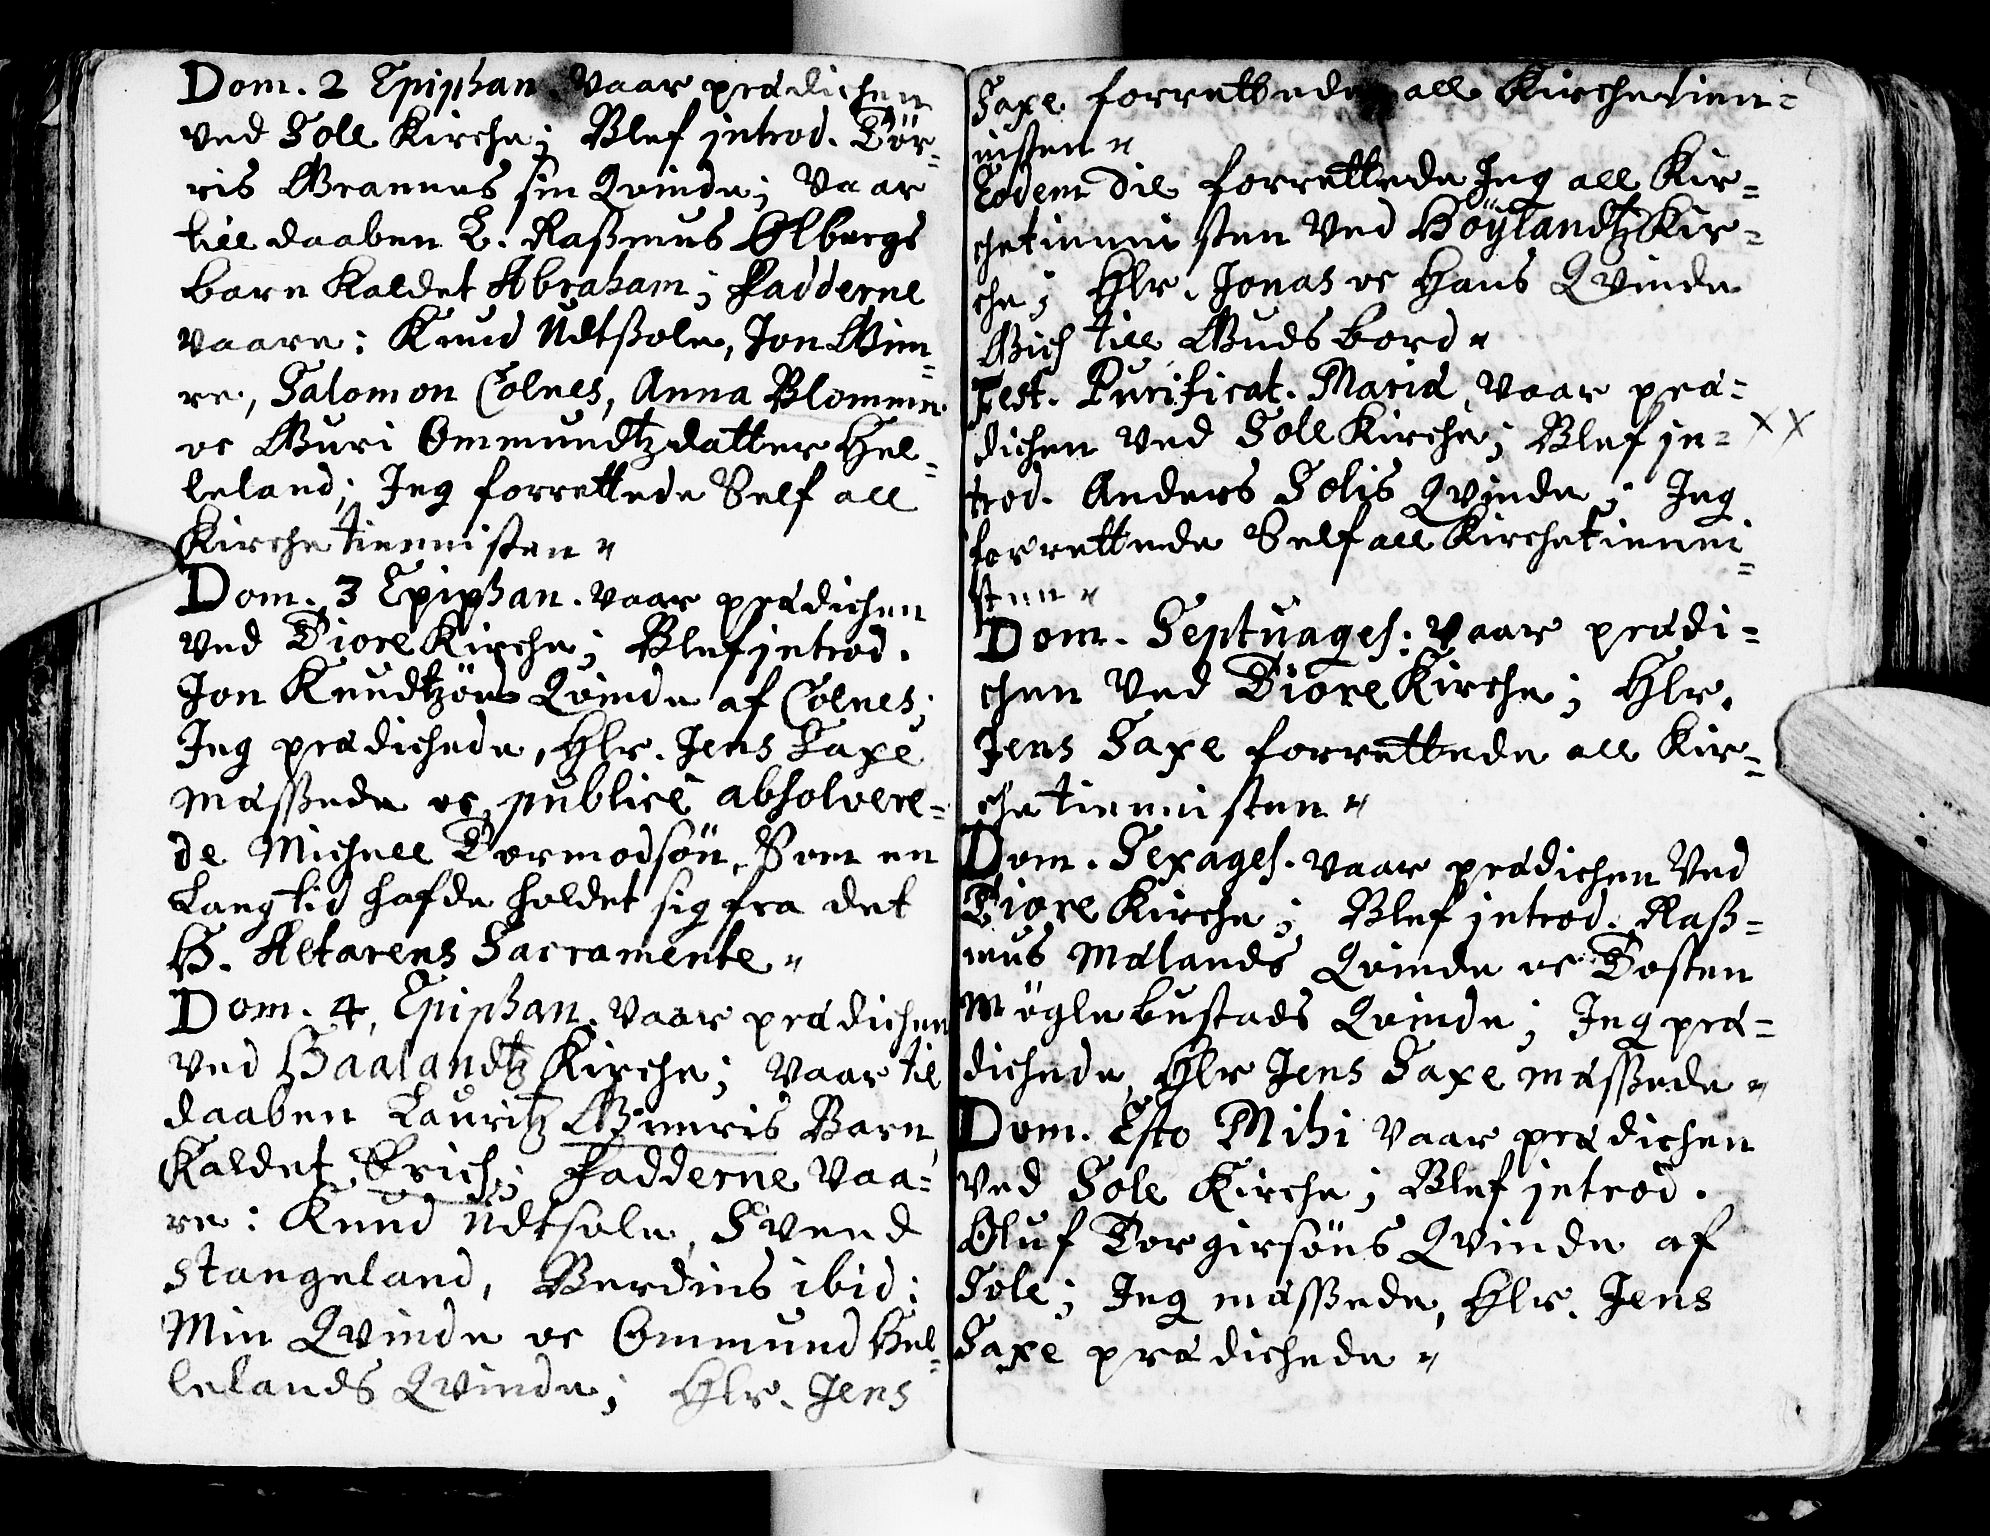 Dom. 2 Epiphan. vaar prædichen
ved Sole Kirche; Blef introd. Tör-
ris Grannes sin Qvinde; vaar
till daaben L. Raßmus Ølbergs
barn kaldet Abraham; fadderne
vaare: Knud Udtßole, Jon Gim-
re, Salomon Colnes, Anna Blomme
oc Guri Ommundtzdatter Hel-
leland; Jeg forrettede Self all
Kirchetiennisten "
Dom. 3 Epiphan. vaar prædichen
ved Tiore Kirche; Blef introd.
Jon Knudtzöns Qvinde af Colnes;
Jeg prædichede, Hlr. Jens Saxe
mæssede oc publicè absolvere-
de Michell Tormodsön, Som en
Lang tid hafde holdet sig fra det
H. Altarens Sacramente "
Dom. 4 Epiphan. vaar prædichen
ved Haalandtz Kirche; Vaar til
daaben Lauritz Gimris Barn
Kaldet Erich; fadderne vaa-
re: Knud Udtsole, Svend
Stangeland, Berdins ibid:
Min Qvinde oc Ommund Hel-
lelands Qvinde; Hlr. Jens
Saxe forrettede all Kirchetien-
nisten "
Eodem die forrettede Jeg all Kir-
chetiennisten ved Höÿlandtz Kir-
che; Hlr. Jonas oc Hans Qvinde
Gich till Guds bord "
Fest. Purificat. Mariæ, vaar præ-
dichen ved Sole Kirche; Blef in- x x
trod. Anders Solis Qvinde; Jeg
forrettede Self all Kirchetienni-
sten "
Dom. Septuages: vaar prædi-
chen ved Tiore Kirche; Hlr.
Jens Saxe forrettede all Kir-
chetiennisten "
Dom. Sexages. vaar prædichen ved
Tiore Kirche; Blef introd. Raß-
mus Mælands Qvinde oc Tosten
Möglebustads Qvinde; Jeg præ-
dichede, Hlr Jens Saxe mæssede "
Dom. Esto Mihi vaar prædichen
ved Sole Kirche; Blef introd.
Oluf Torgirsöns Qvinde af
Sole; Jeg mæssede, Hlr. Jens
Saxe prædichede "